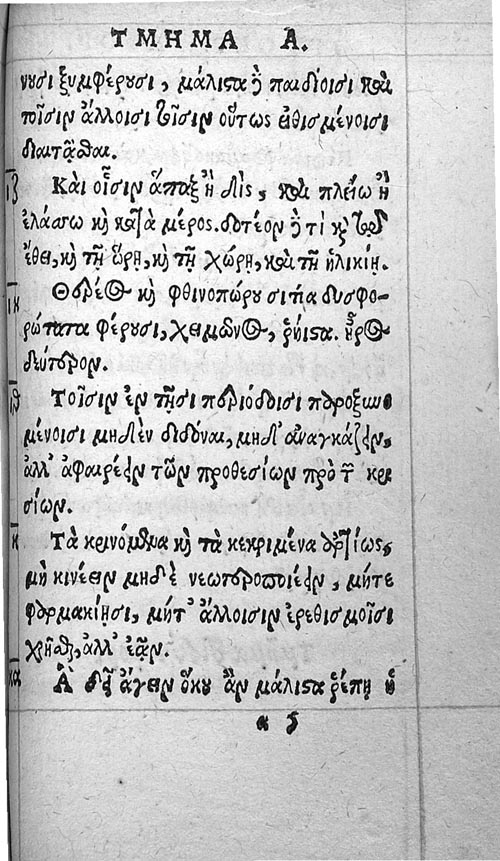 ΤΜΗΜΑ Α.
νυσι ξυμφέρυσι, μάλιστα ἢ παιδίοισι καὶ
τοῖσιν ἄλλοισι τοῖσιν οὕτως εἰθισμένοισι
διαιτᾶσθαι.
ιζ Καὶ οἷσιν ἅπαξ ἢ δὶς, καὶ πλείω ἢ
ἐλάσσω κὴ κατὰ μέρος. δοτέον ἢ τί κὴ τῷ
ἔθει, κὴ τῇ ὥρῃ, κὴ τῇ χώρῃ, καὶ τῇ ἡλικίῃ.
ιη Θέρεος κὴ φθινοπώρου σιτία δυσφο-
ρώτατα φέρουσι, χειμῶνος, ῥήϊστα. ἦρος
δεύτερον.
ιθ Τοῖσιν ἐν τῇσι περιόδοισι παροξυνο
μένοισι μηδὲν διδόναι, μηδ' ἀναγκάζειν,
ἀλλ' ἀφαιρέειν τῶν προθεσίων πρὸ τῶν κρι
σίων.
κ Τὰ κρινόμενα κὴ τὰ κεκριμένα ἀρτίως,
μὴ κινέειν μηδὲ νεωτεροποιέειν, μήτε
φαρμακίῃσι, μήτ' ἄλλοισιν ἐρεθισμοῖσι
χρῆσθαι, ἀλλ' ἐᾶν.
κα Ἃ δεῖ ἄγειν ὅκου ἂν μάλιστα ῥέπῃ ἡ
α 5